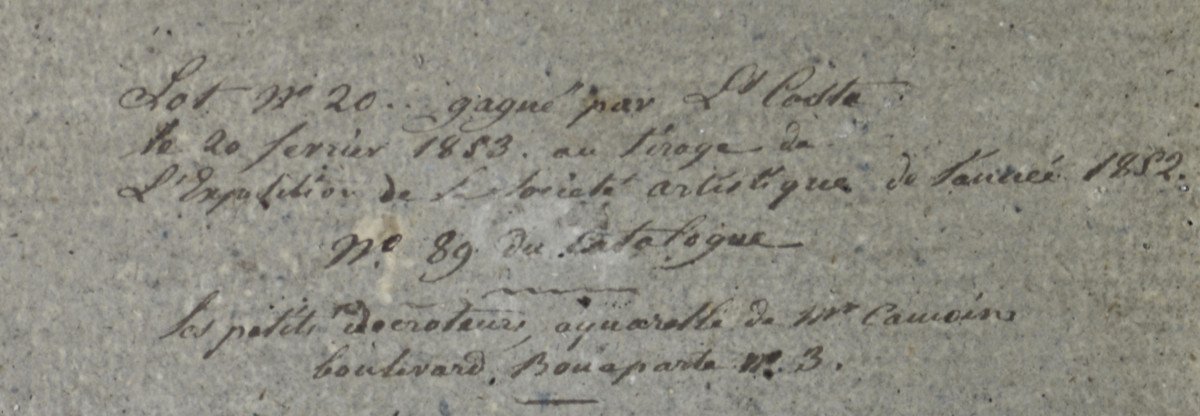 Lot No 20. gagné par Lt Coste
le 20 fevrier 1853. au tirage de
L'Exposition de la Societé artistique de l'année 1852.
No. 89 du Catalogue
les petits decroteurs, aquarelle de Mr Camoin
boulevard Bonaparte No. 3.